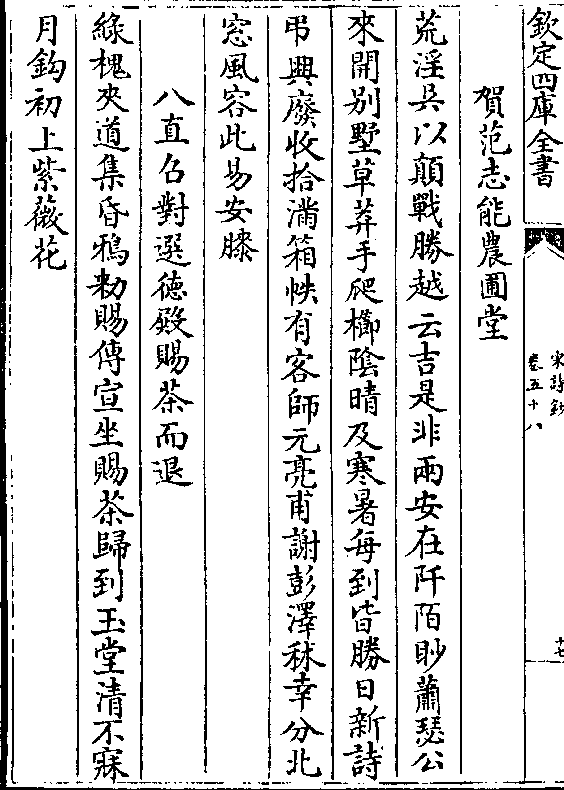 欽定四庫全書
宋詩鈔
卷五十八
十七
賀范志能農圃堂
荒淫吳以顛戰勝越云吉是非兩安在阡陌眇蕭瑟公
來開別墅草莽手爬櫛陰晴及寒暑每到皆勝日新詩
弔興廢收拾滿箱帙有客師元亮甫謝彭澤秫幸分北
窓風容此易安膝
八直召對選徳殿賜茶而退
緑槐夾道集昏鴉勅賜傳宣坐賜茶歸到玉堂清不寐
月鈎初上紫薇花